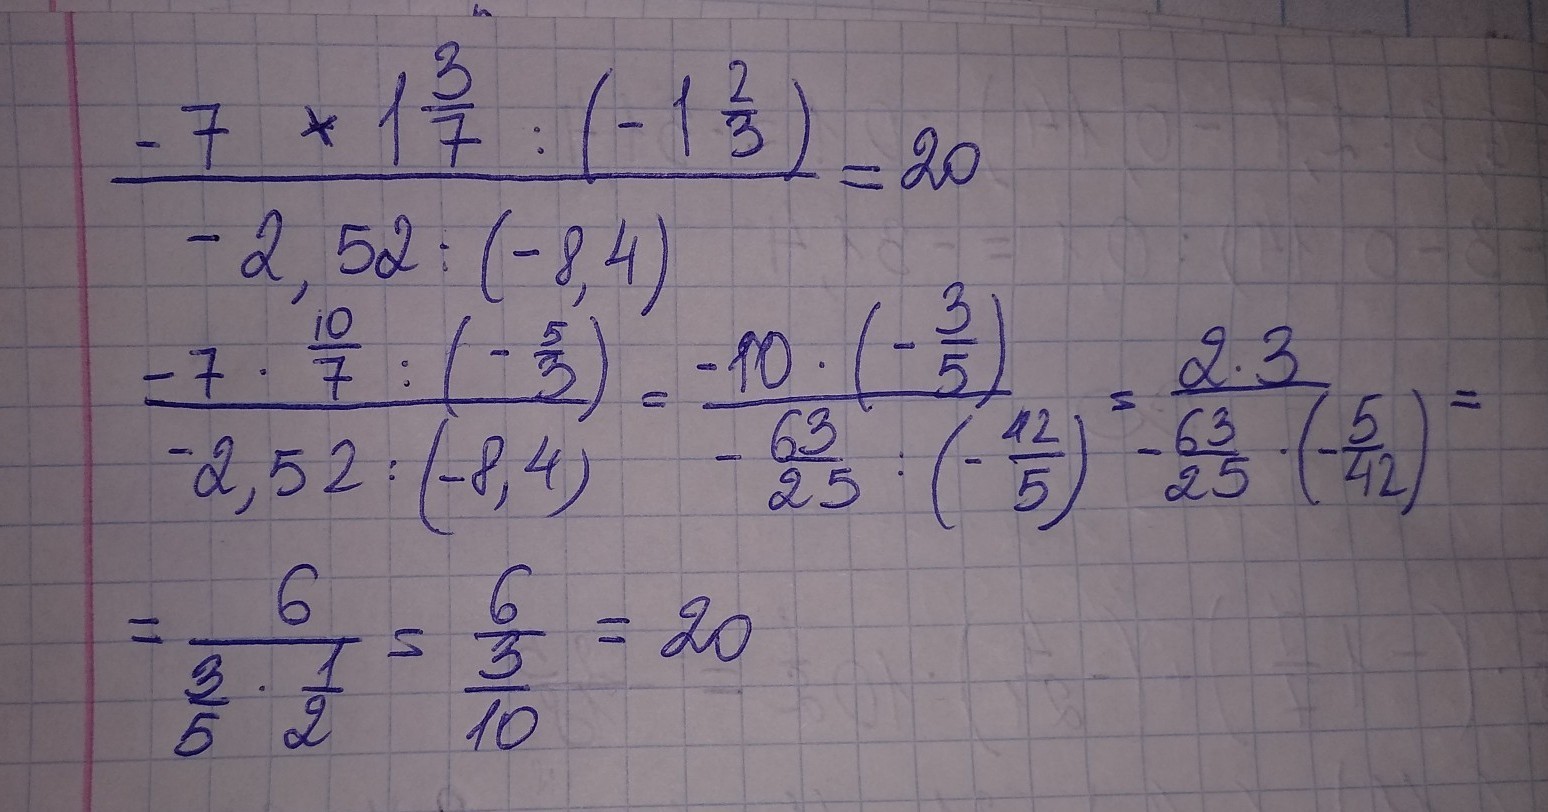 -7 * 1 3/7 : (-1 2/3) / -2,52 : (-8,4) = 20
-7 · 10/7 : (-5/3) / -2,52 : (-8,4) = -10 · (-3/5) / -63/25 : (-42/5) = 2·3 / -63/25 · (-5/42) =
= 6 / 3/5 · 1/2 = 6 / 3/10 = 20